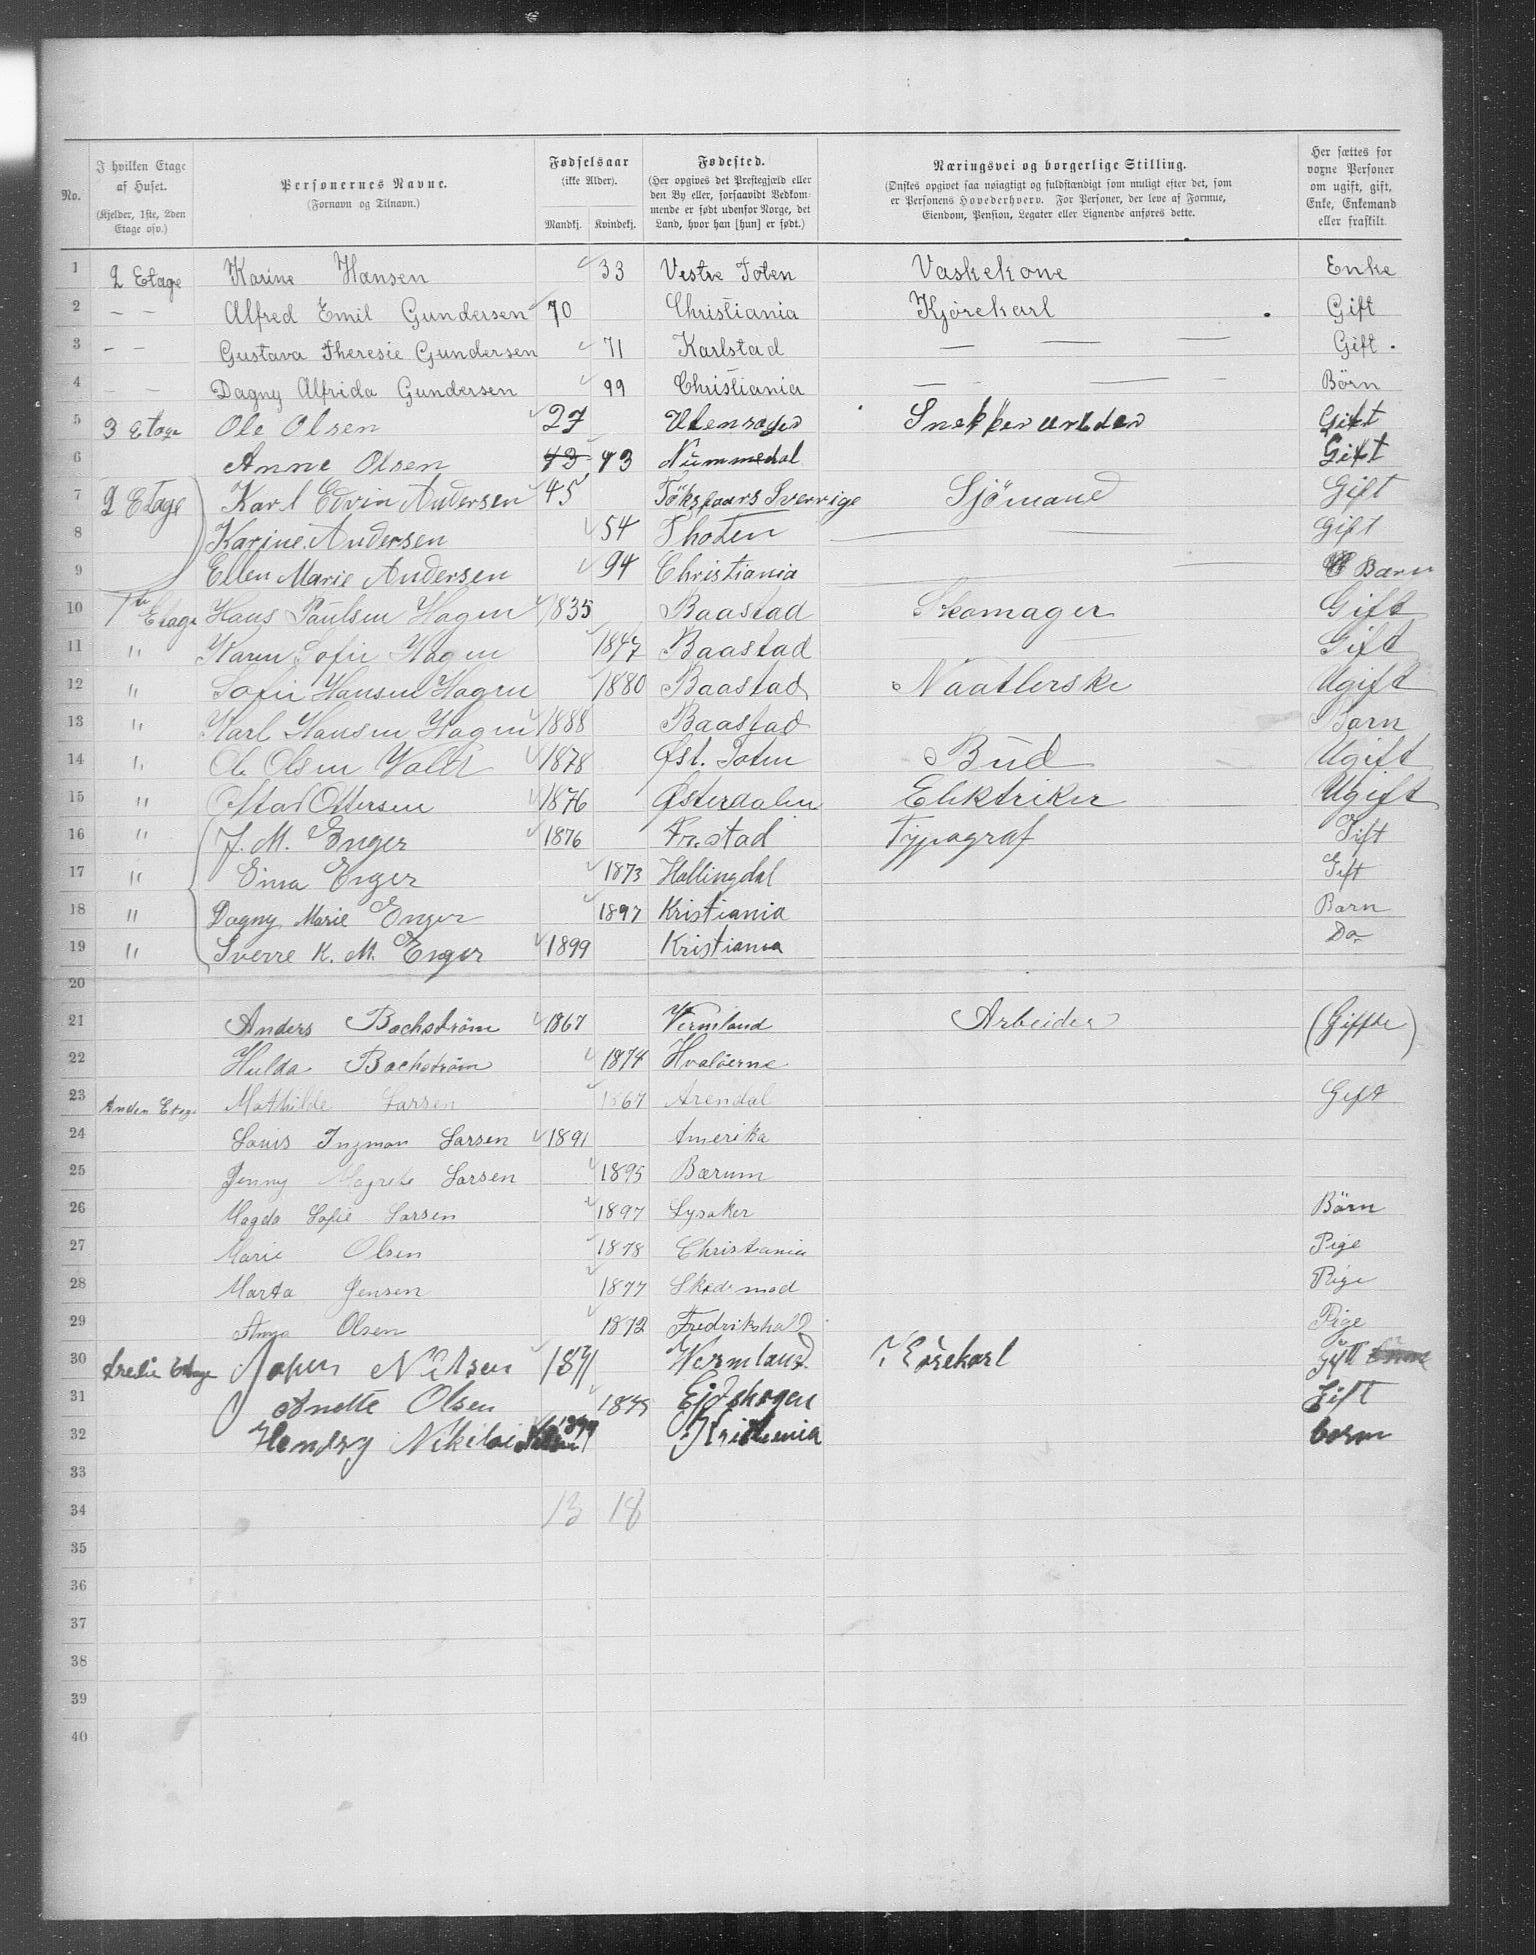 No.
I hvilken Etage af Huset.
(Kjelder, 1ste, 2den Etage osv.)
Personernes Navne.
(Fornavn og Tilnavn.)
Fødselsaar
(ikke Alder).
Mandkj. Kvindekj.
Fødested.
(Her opgives det Prestegjæld eller den By eller, forsaavidt Vedkommende er født udenfor Norge, det Land, hvor han [hun] er født.)
Næringsvei og borgerlige Stilling.
(Ønskes opgivet saa nøiagtigt og fuldstændigt som muligt efter det, som er Personens Hovederhverv. For Personer, der leve af Formue, Eiendom, Pension, Legater eller Lignende anføres dette.
Her sættes for voxne Personer om ugift, gift, Enke, Enkemand eller fraskilt.
1 2 Etage Karine Hansen 33 Vestre Toten Vaskekone Enke
2 — — Alfred Emil Gundersen 70 Christiania Kjørekarl Gift
3 — — Gustava Theresie Gundersen 71 Karlstad — — — Gift.
4 — — Dagny Alfrida Gundersen 99 Christiania — — — Børn
5 3 Etage Ole Olsen 27 Gift
6 Anne Olsen 43 43 Nummedal Gift
7 2 Etage Karl Edvin Andersen 45 Sverrige Sjömand Gift
8 Karine Andersen 54 Thoten Gift
9 Ellen Marie Andersen 94 Christiania Barn
10 1ste Etage Hans Paulsen Hagen 1835 Baastad Skomager Gift
11 " Karen Sofie Hagen 1847 Baastad Gift
12 " Sofie Hansen Hagen 1880 Baastad Naatlerske Ugift
13 " Karl Hansen Hagen 1888 Baastad Barn
14 " Ole Olsen 1878 Øst. Toten Bud Ugift
15 " Ottersen 1876 Østerdalen Elektriker Ugift
16 " J. M. Enger 1876 Fr.stad Typograf Gift
17 " Enger 1873 Hallingdal Gift
18 " Dagny Marie Enger 1897 Kristiania Barn
19 " Sverre K. M. Enger 1899 Kristiania Do
20
21 Anders Bachstrøm 1867 Vermland Arbeider (Giftte)
22 Hulda Bachstrøm 1874 Hvaløerne
23 Anden Etage Mathilde Larsen 1867 Arendal Gift
24 Louis Ingman Larsen 1891 Amerika
25 Jenny Magrete Larsen 1895 Bærum
26 Magda Sofie Larsen 1897 Lysaker Børn
27 Marie Olsen 1878 Christiania Pige
28 Marta Jensen 1877 Skedsmod Pige
29 Olsen 1872 Fredrikshald Pige
30 Etage Nilsen 1871 Wermland Gift
31 Anette Olsen Gift
32 Hendry Nikolai 1899 Kristiania barn
33
34 13 18
35
36
37
38
39
40